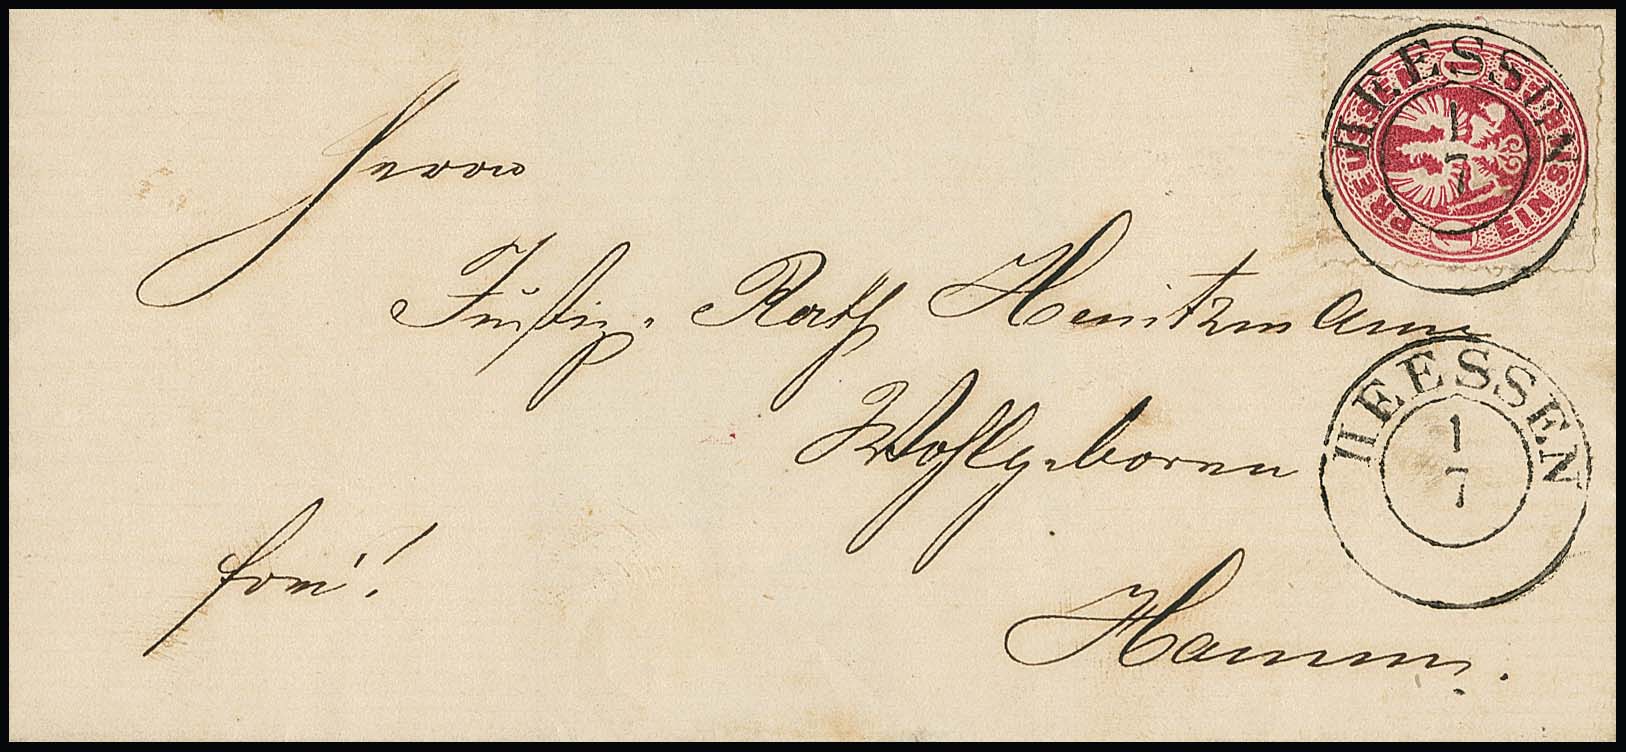 HEESSEN
1
7
PREUSSEN EINS
Herrn
Justiz-Rath Heintzmann
Wohlgeboren
HEESSEN
1
7
frei!
Hamm.